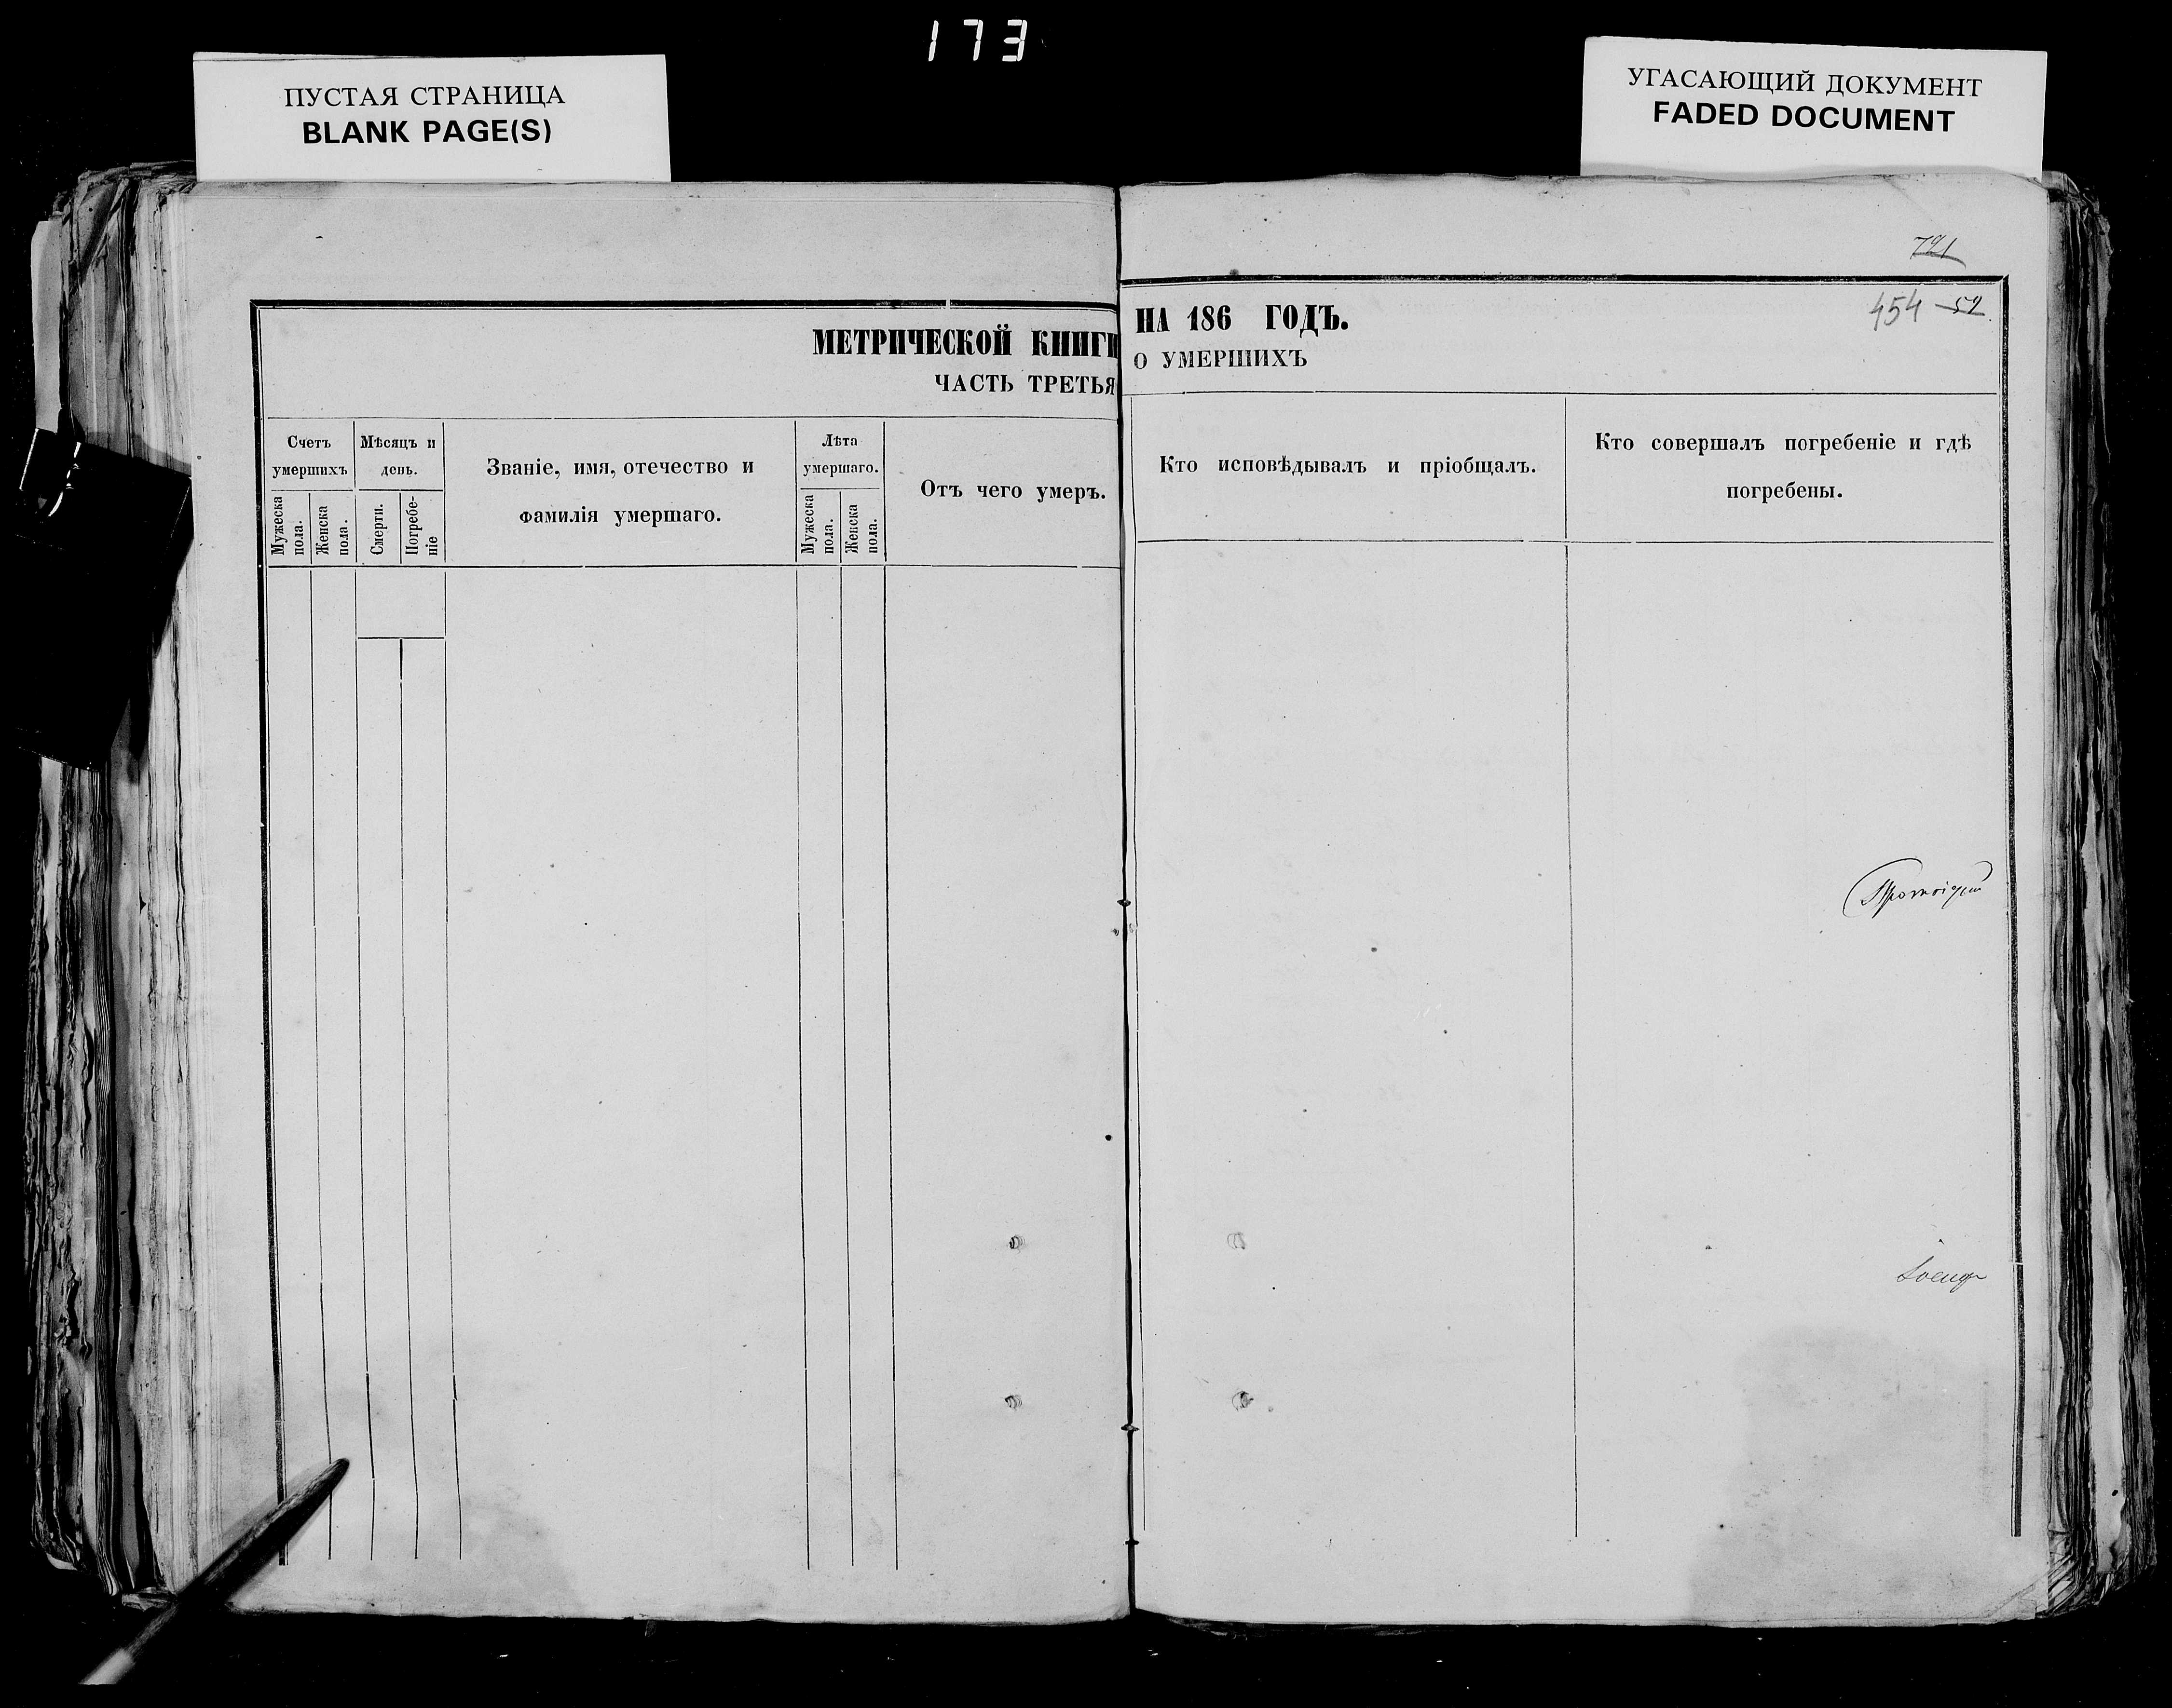 173
ПУСТАЯ СТРАНИЦА
BLANK PAGE(S)
УГАСАЮЩИЙ ДОКУМЕНТ
FADED DOCUMENT
721
454 52
МЕТРИЧЕСКОЙ КНИГИ НА 186 ГОДЪ.
ЧАСТЬ ТРЕТЬЯ О УМЕРШИХЪ
Счетъ
умершихъ
Мужеска
пола.
Женска
пола.
Мѣсяцъ и
день.
Смерти.
Погребе-
ніе
Званіе, имя, отечество и
фамилія умершаго.
Лѣта
умершаго.
Мужеска
пола.
Женска
пола.
Отъ чего умеръ.
Кто исповѣдывалъ и пріобщалъ.
Кто совершалъ погребеніе и гдѣ
погребены.